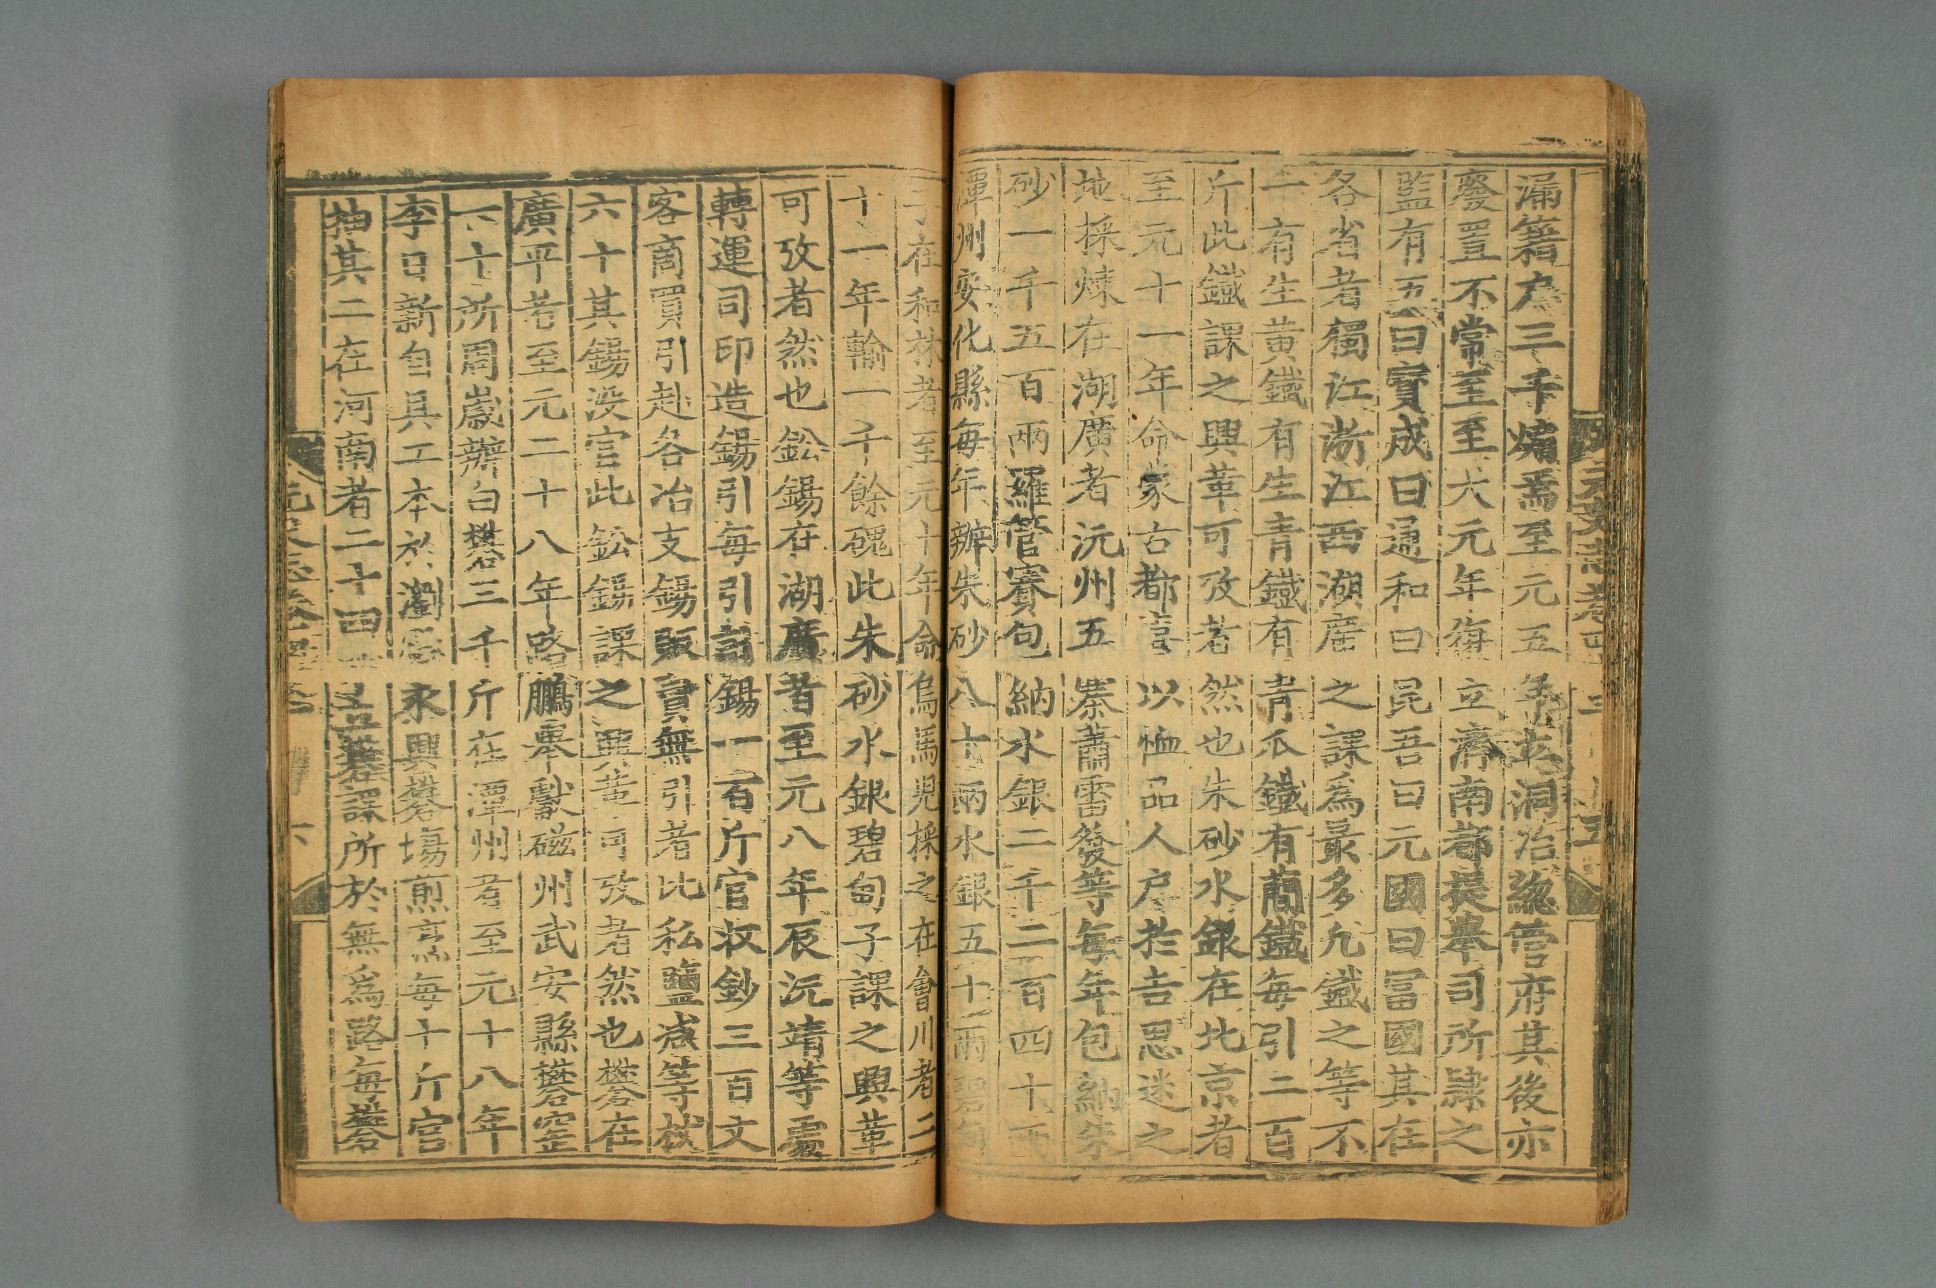 漏籍戶三千煽焉至元五年立洞冶總管府其後亦
廢置不常至至大元年復立濟南都提舉司所隸之
監有五曰寶成曰通和曰昆吾曰元國曰富國其在
各省者獨江浙江西湖廣之課爲最多凡鐵之等不
一有生黃鐵有生青鐵有青瓜鐵有簡鐵每引二百
斤此鐵課之興革可攷者然也朱砂水銀在北京者
至元十一年命蒙古都喜以恤品人戶於吉思迷之
地採煉在湖廣者沅州五寨蕭雷發等每年包納朱
砂一千五百兩羅管賽包納水銀二千二百四十兩
潭州安化縣每年辦朱砂八十兩水銀五十兩碧甸
子在和林者至元十年命烏馬兒採之在會川者二
十一年輸一千餘磈此朱砂水銀碧甸子課之興革
可攷者然也鈆錫在湖廣者至元八年辰沅靖等處
轉運司印造錫引每引計錫一百斤官收鈔三百文
客商買引赴各冶支錫販賣無引者比私鹽减等杖
六十其錫没官此鈆錫課之興革可攷者然也礬在
廣平者至元二十八年路鵬舉獻磁州武安縣礬窑
一十所周歲辦白礬三千斤在潭州者至元十八年
李日新自具工本於瀏陽永興礬場煎烹每十斤官
抽其二在河南者二十四年立礬課所於無爲路每礬
元史志卷四
六